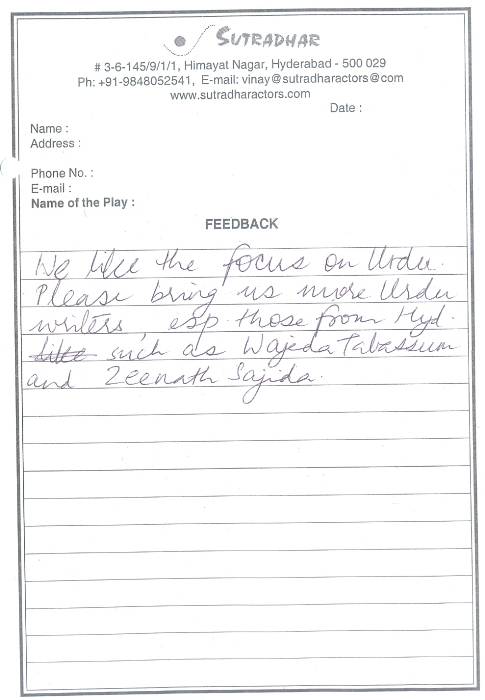 SUTRADHAR
# 3-6-145/9/1/1, Himayat Nagar, Hyderabad - 500 029
Ph: +91-9848052541, E-mail: vinay@sutradharactors@com
www.sutradharactors.com
Date :
Name :
Address :
Phone No. :
E-mail :
Name of the Play :
FEEDBACK
We like the focus on Urdu.
Please bring us more Urdu
writers, esp. those from Hyd.
like such as Wajeda Tabassum
and Zeenath Sajida.